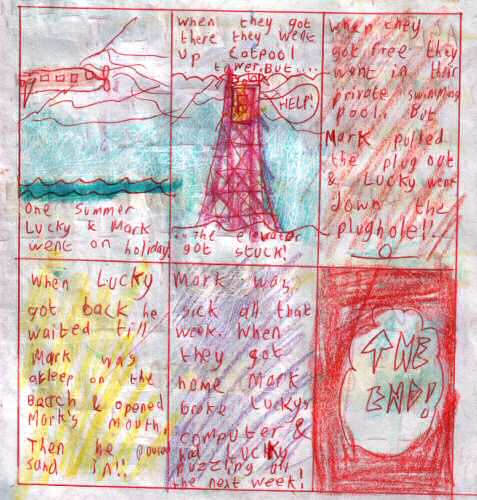 One Summer
Lucky & Mark
went on holiday.
When they got
there they went
up Catpool
tower. But....
HELP!
The elevator
got stuck!
When they
got free they
went in their
private swimming
pool. But
Mark pulled
the plug out
& Lucky went
down the
plughole!!..
When Lucky
got back he
waited till
Mark was
asleep on the
Beach & opened
Mark's mouth,
Then he poured
sand in!!
Mark was
sick all that
week. When
they got
home Mark
broke Luckys
computer &
had Lucky
puzzling all
the next week!
THE
END!